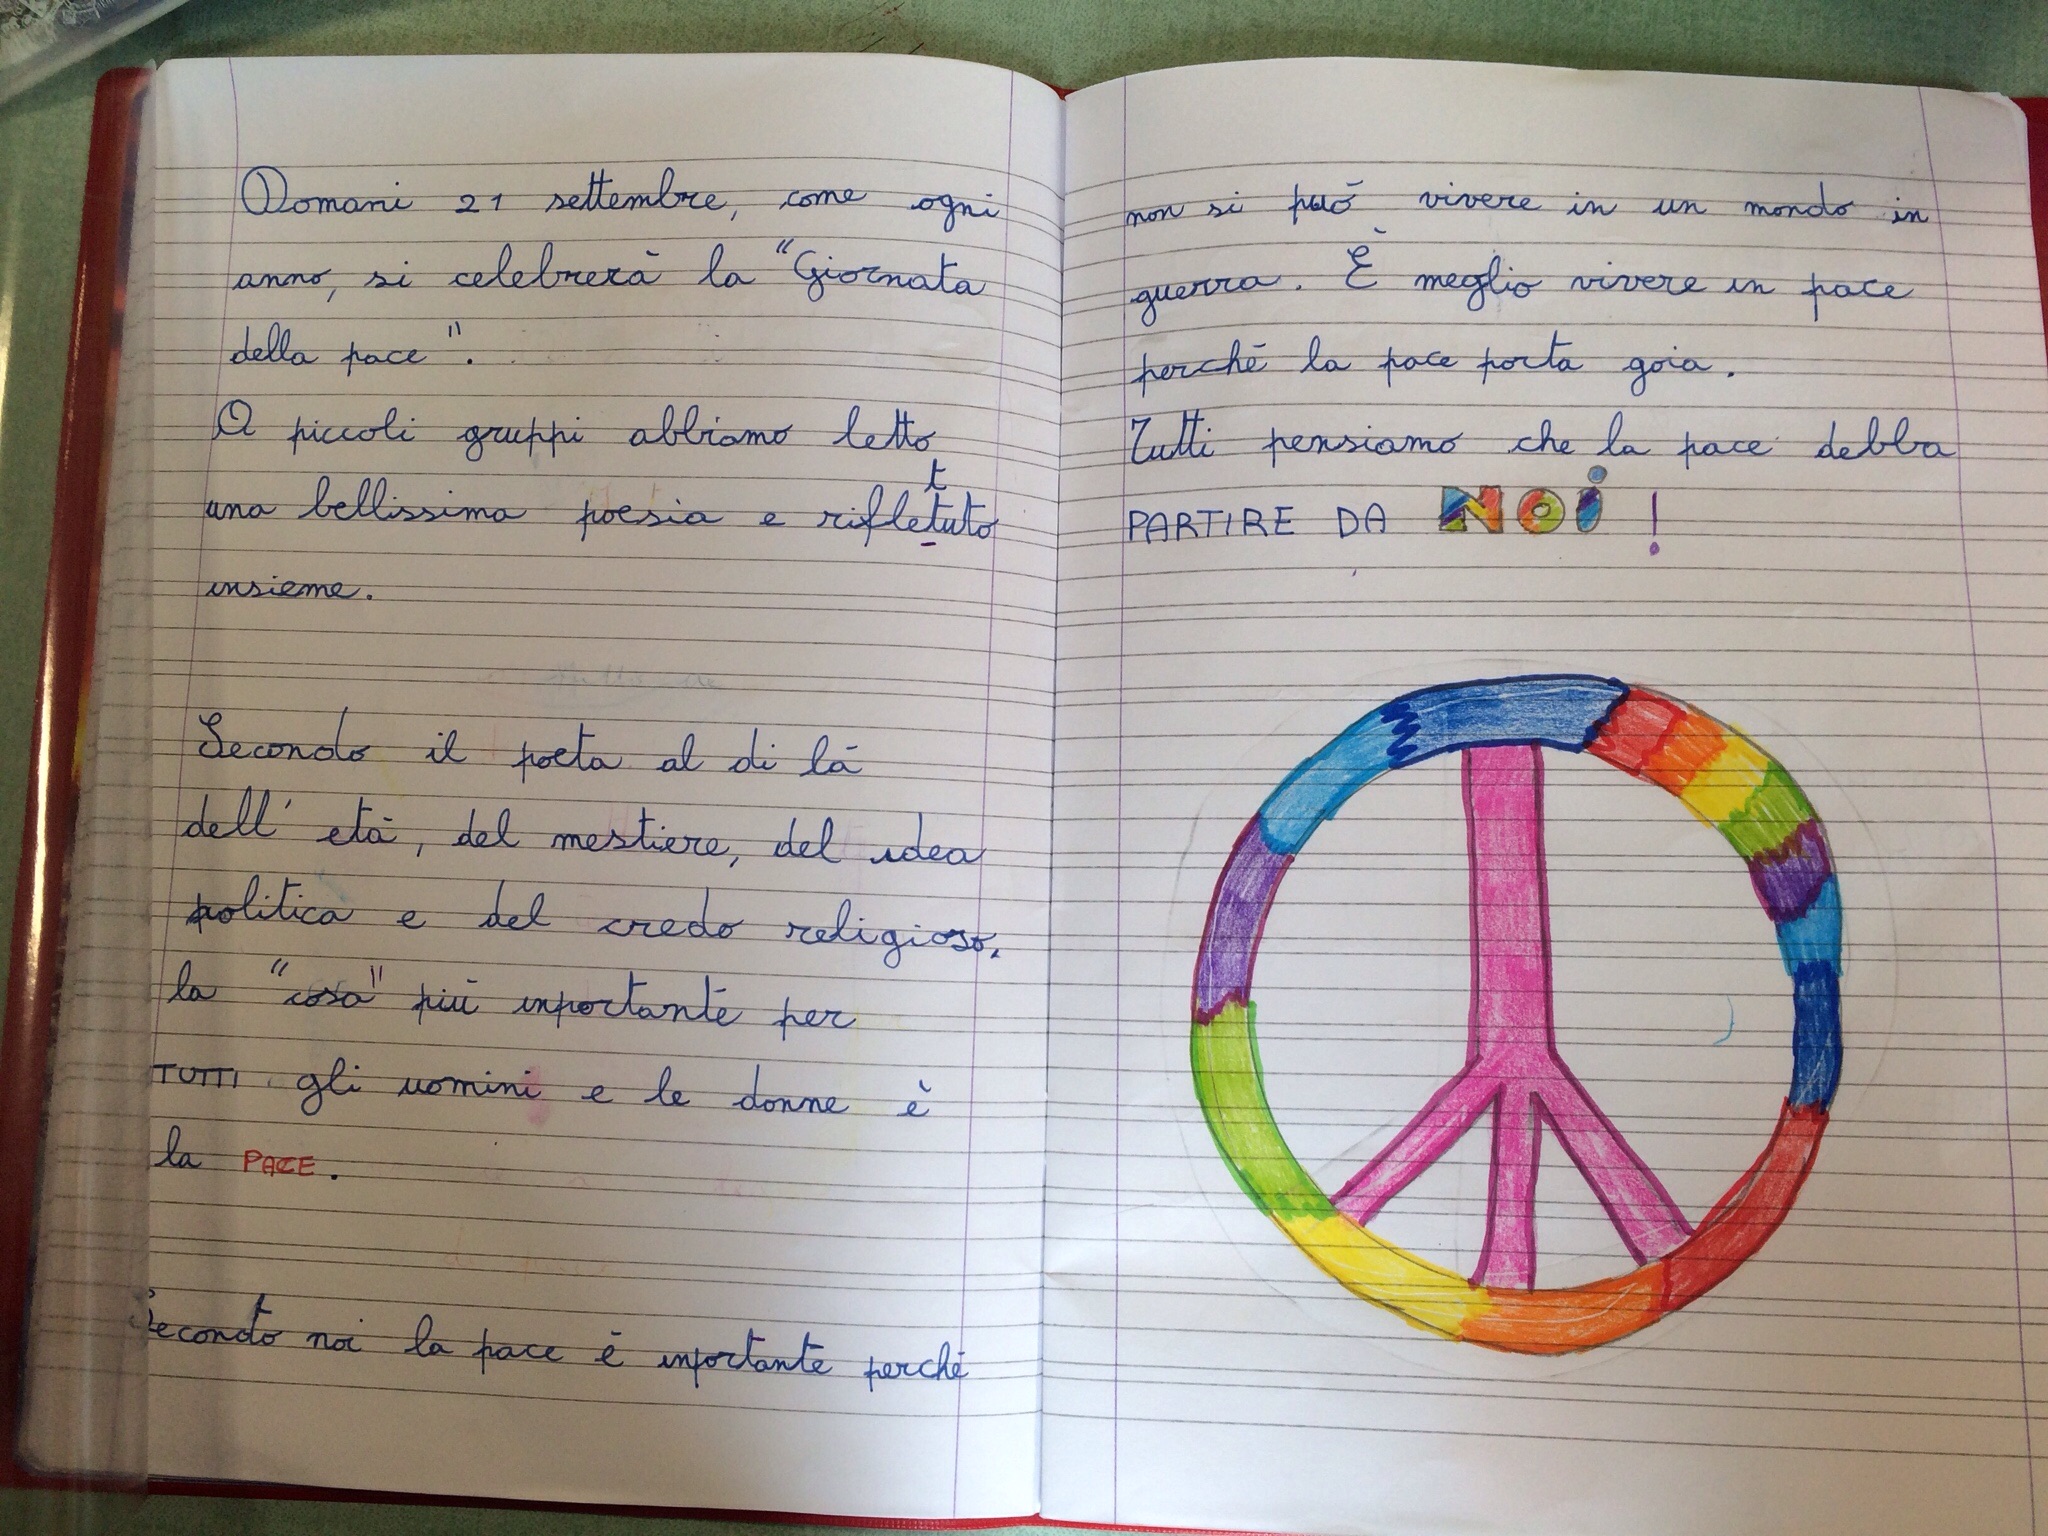 Domani 21 settembre, come ogni
anno, si celebrerà la "Giornata
della pace".
A piccoli gruppi abbiamo letto
una bellissima poesia e riflettuto
insieme.
Secondo il poeta al di là
dell'età, del mestiere, del idea
politica e del credo religioso,
la "cosa" più inportante per
TUTTI gli uomini e le donne è
la PACE.
Secondo noi la pace è inportante perché
non si può vivere in un mondo in
guerra. È meglio vivere in pace
perché la pace porta goia.
Tutti pensiamo che la pace debba
PARTIRE DA NOi!